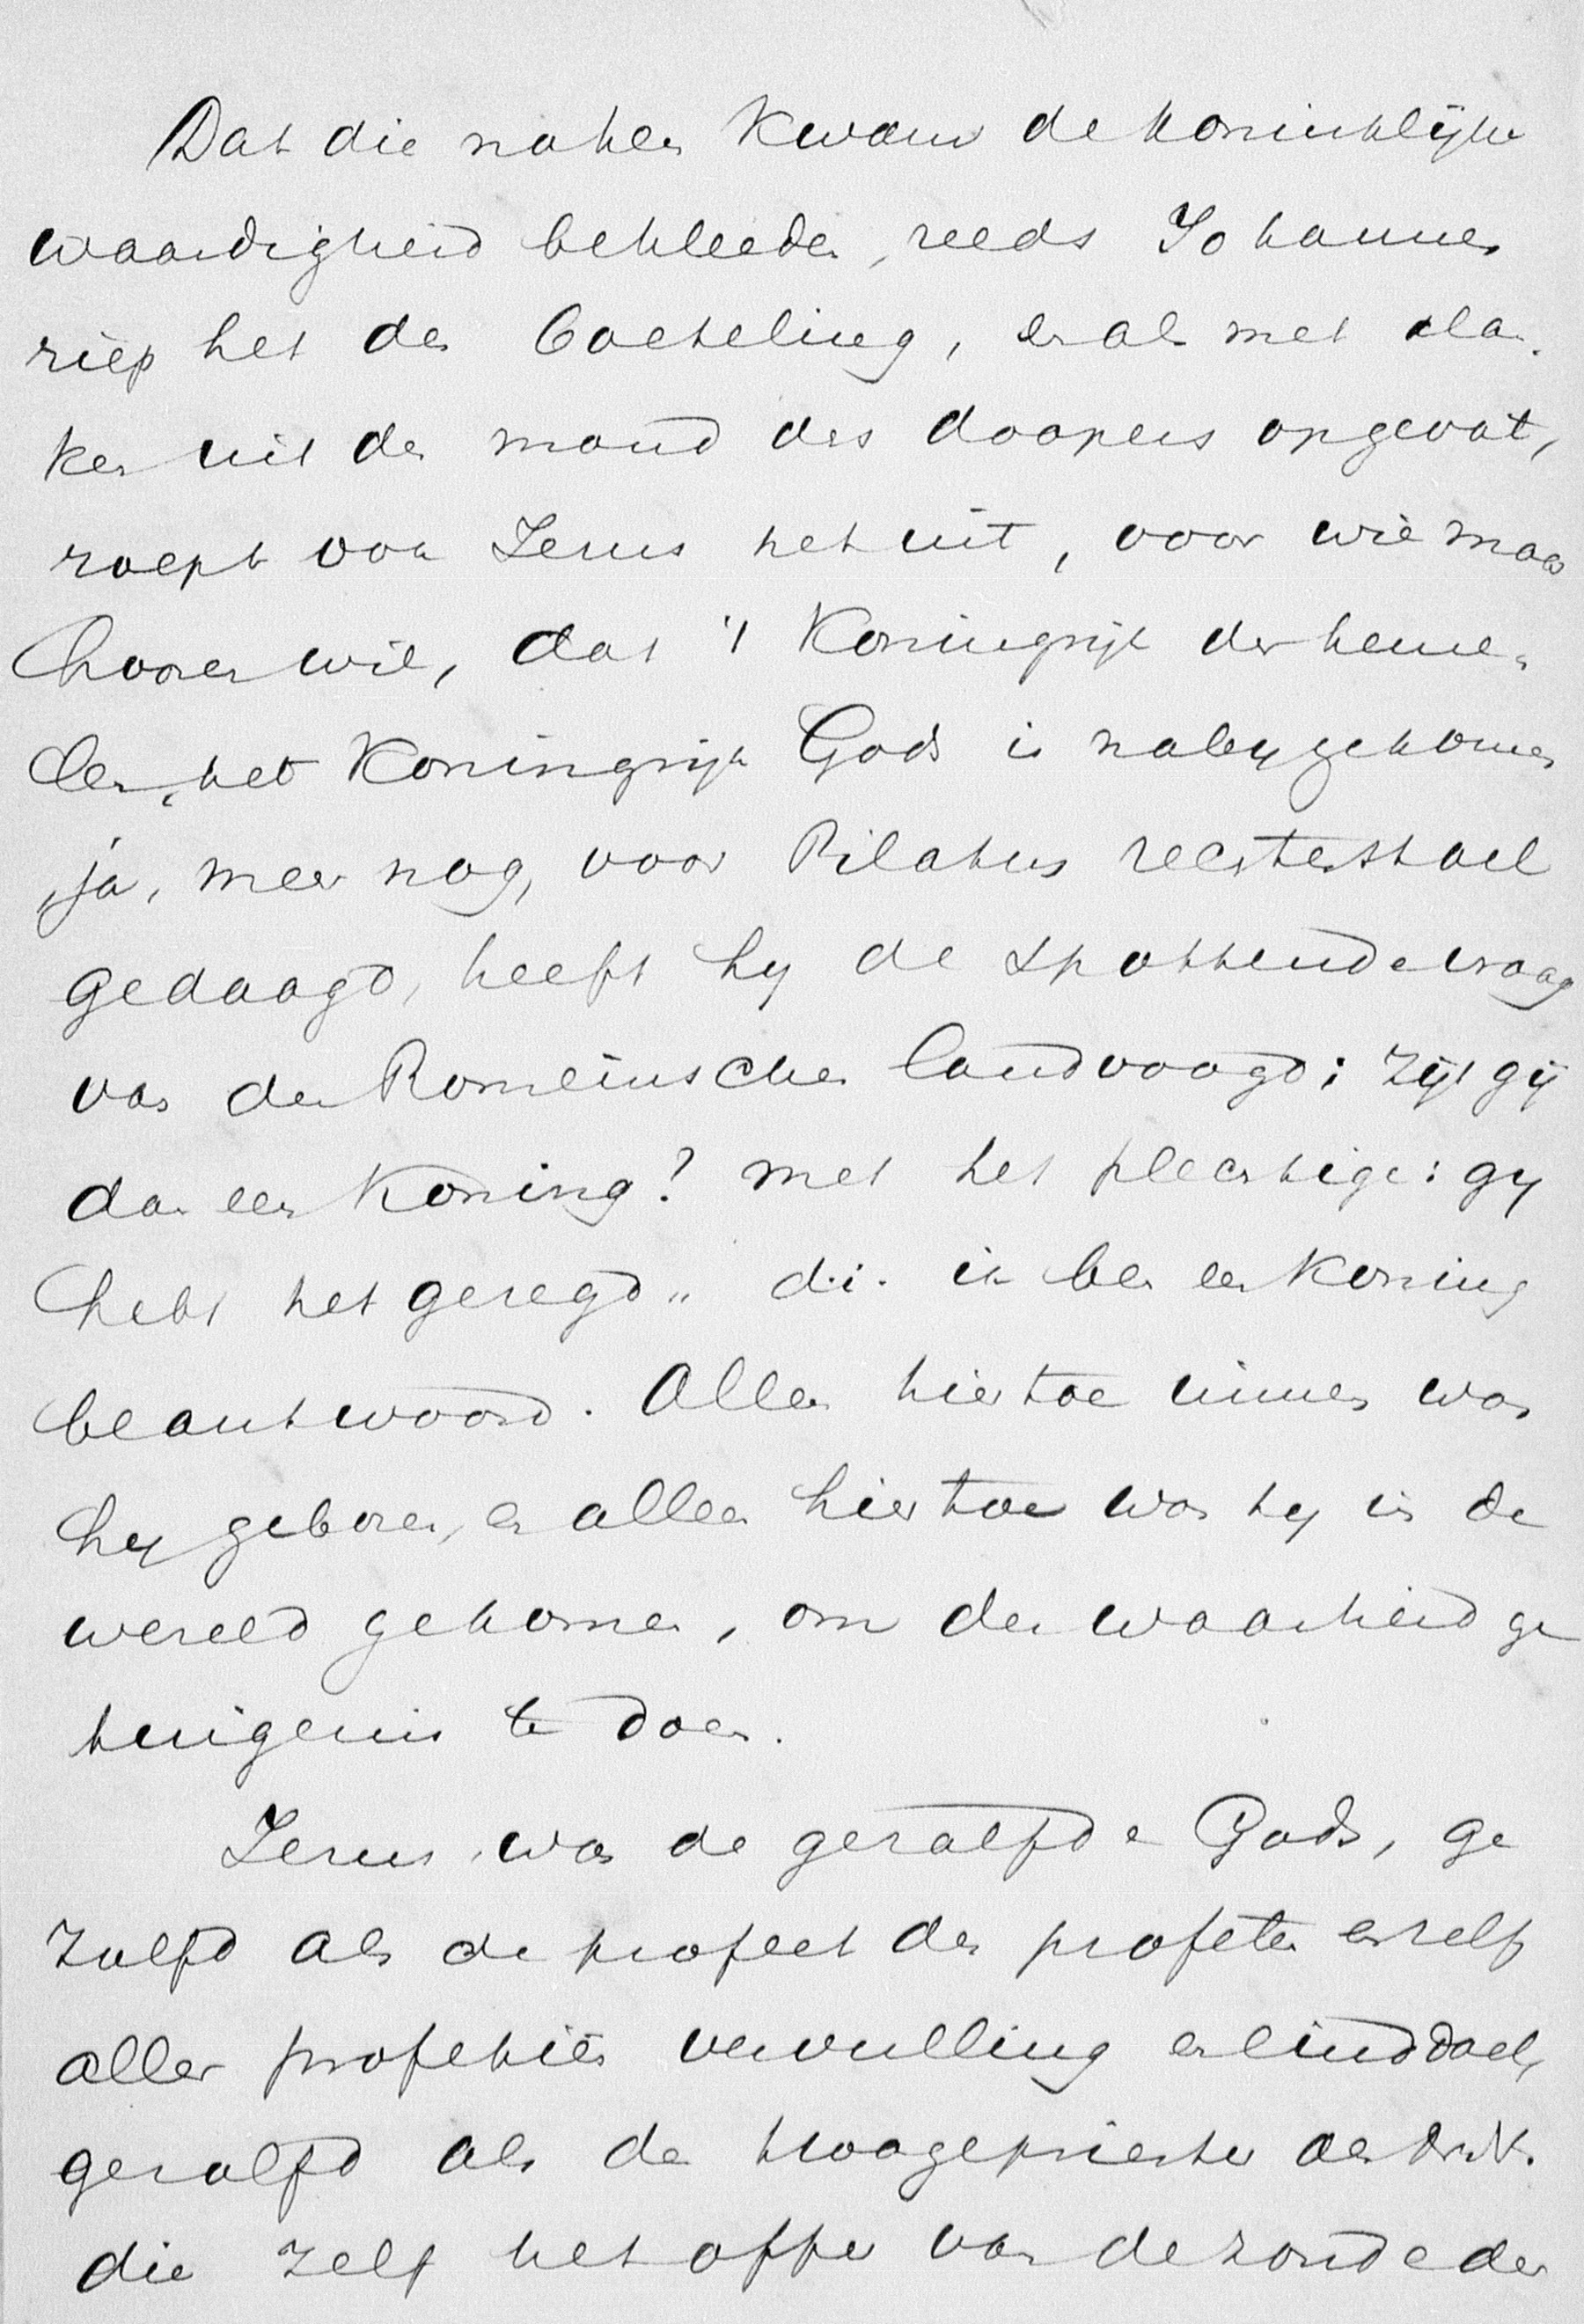 Dat die naken kwam de koninklijke
waardigheid bekleeden, reeds Johannes
riep het den boeteling, en als met kla-
ken uit den mond des doopers opgevat,
roept ook Jesus het uit, voor wie maar
hooren wil, dat 't Koningrijk der heme-
len, het Koningrijk Gods is nabygekomen
ja, meer nog, voor Pilatus rechterstoel
gedaagd, heeft hy de spottende vraag
van den Romeinschen landvoogd: zijt gij
dan een Koning? met het plechtige: gy
hebt het gezegd" d.i. ik ben een Koning
beantwoord. Alleen hiertoe immers was
hy geboren, en alleen hiertoe was hy in de
wereld gekomen, om der waarheid ge
tuigenis te doen.
Jesus was de gezalfde Gods, ge
zalfd als de profeet der profeten en zelf
aller profetiën vervulling en einddoel,
gezalfd als de hoogepriester
die zelf het offer van de zonde der